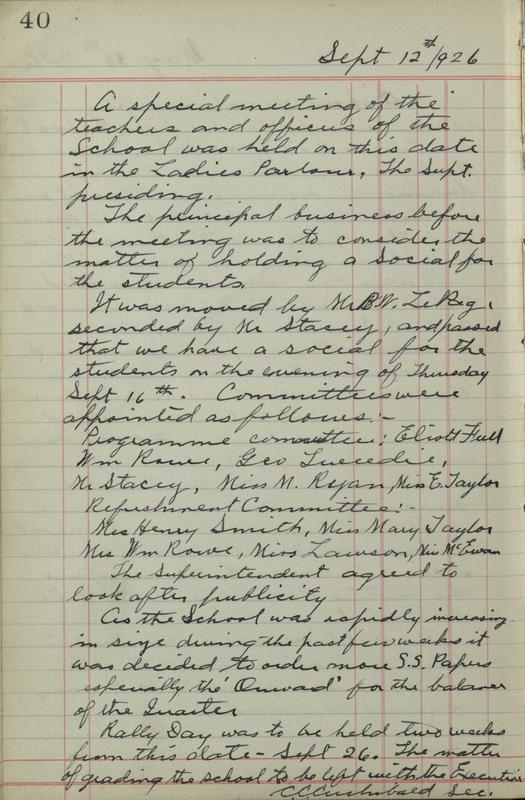 40
Sept 12th/926
A special meeting of the
teachers and officers of the
School was held on this date
in the Ladies Parlour, The Supt.
presiding.
The principal business before
the meeting was to consider the
matter of holding a Social for
the students.
It was moved by Mr B.V. LePag
seconded by Mr Stacey, and passed
that we have a social for the
students on the evening of Thursday
Sept 16th. Committees were
appointed as follows:-
Programme committee: Eliott Full
Wm Rowe, Geo Tweedie,
Mr Stacey, Miss M. Ryan, Miss E. Taylor
Refreshment Committee:-
Mrs Henry Smith, Miss Mary Taylor
Mrs Wm Rowe, Miss Lawson, Miss McEwan
The Superintendent agreed to
look after publicity
As the School was rapidly increasing
in size during the past few weeks it
was decided to order more S.S. Papers
especially the 'Onward' for the balance
of the Quarter
Rally Day was to be held two weeks
from this date - Sept 26. The matter
of grading the school to be left with the Executive
C.C. Archibald Sec.